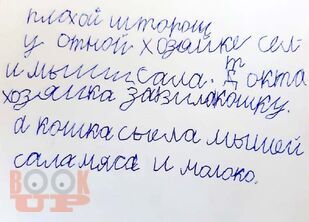 плахой шторош
у отной хозяйке сел
и мыши сала. Токта
хозяйка завилакошку.
а кошка сыела мышей
сала мяса и молоко.
BOOK
UP